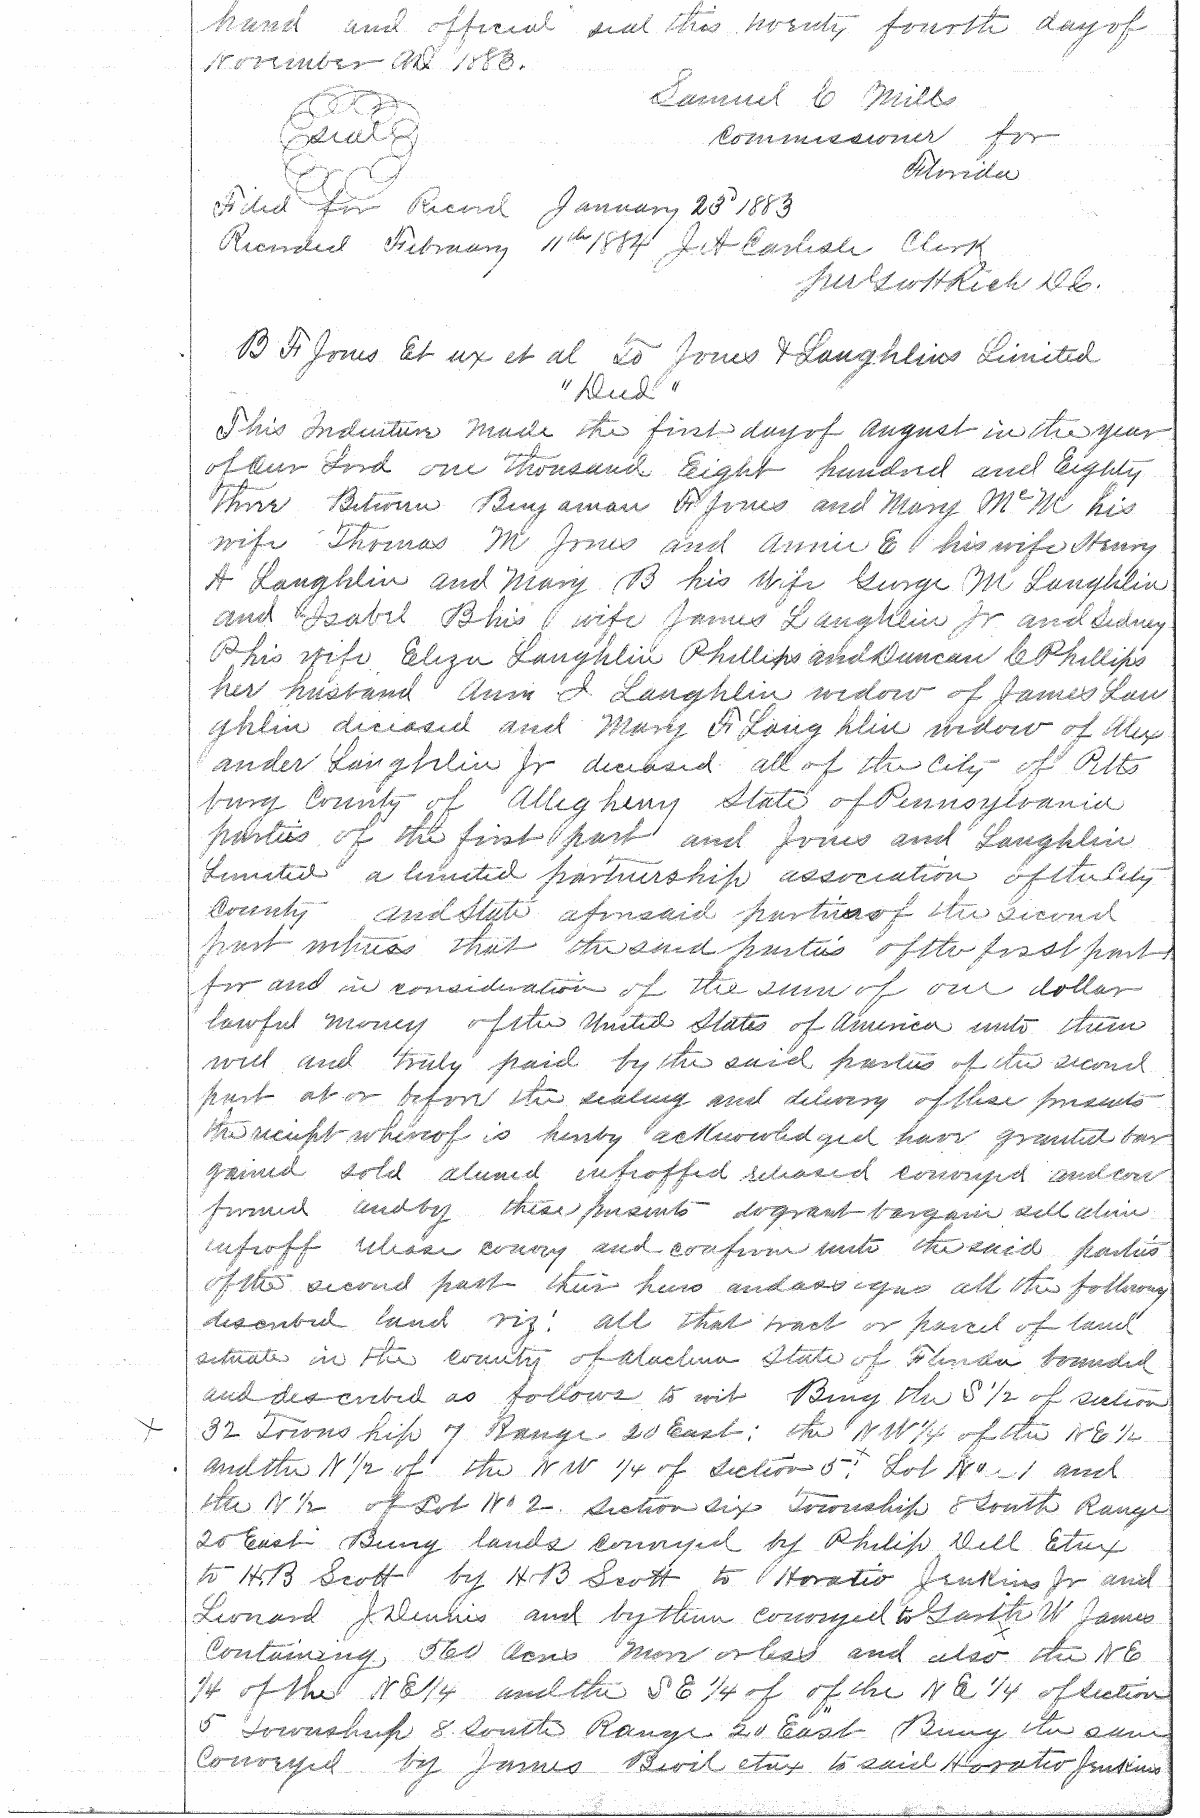 hand and official seal this twenty fourth day of
November AD 1883.
Samuel C Mills
seal
Commissioner for
Florida
Filed for Record January 23d 1883
Recorded February 11th 1884 J A Carlisle Clerk
per Geo H Rich D C.
B F Jones Et ux et al To Jones & Laughlins Limited
"Deed"
This Indenture Made the first day of August in the year
of Our Lord one thousand Eight hundred and Eighty
Three Between Benjaman F Jones and Mary McM his
wife Thomas M Jones and Annie E his wife Henry
A Laughlin and Mary B his Wife George M Laughlin
and Isabel B his wife James Laughlin Jr and Sidney
P his wife Eliza Laughlin Phillips and Duncan C Phillips
her husband Ann I Laughlin widow of James Lau
ghlin deceased and Mary F Laughlin widow of Alex
ander Laughlin Jr deceased all of the City of Pitts
burg County of Allegheny State of Pennsylvania
parties of the first part and Jones and Laughlin
Limited a limited partnership association of the City
County and State aforesaid parties of the second
part witness that the said parties of the first part
for and in consideration of the sum of one dollar
lawful money of the United States of America unto them
well and truly paid by the said parties of the second
part at or before the sealing and delivery of these presents
the receipt whereof is hereby acknowledged have granted bar
gained sold aliened enfeoffed released conveyed and con
firmed and by these presents do grant bargain sell alien
enfeoff release convey and confirm unto the said parties
of the second part their heirs and assigns all the following
described land viz: all that tract or parcel of land
situate in the county of Alachua State of Florida bounded
and described as follows to wit Being the S 1/2 of section
32 Township 7 Range 20 East; the NW 1/4 of the NE 1/2
and the N 1/2 of the NW 1/4 of section 5; Lot No 1 and
the N 1/2 of Lot No 2 section six Township 8 South Range
20 East Being lands conveyed by Philip Dell Et ux
to H.B Scott by H B Scott to Horatio Jenkins Jr and
Leonard J Dennis and by them conveyed to Garth W James
Containing 560 Acres More or less and also the NE
1/4 of the NE 1/4 and the SE 1/4 of of the NE 1/4 of section
5 Township 8 South Range 20 East Being the same
Conveyed by James Bevil et ux to said Horatio Jenkins